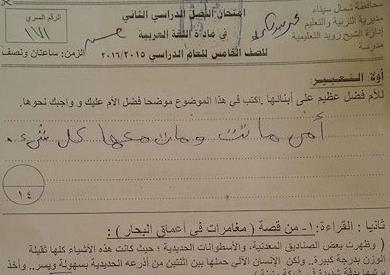 محافظة شمال سيناء
مديرية التربية والتعليم
إدارة الشيخ زويد التعليمية
مدرسة
امتحان الفصل الدراسي الثاني
في مادة اللغة العربية
للصف الخامس للعام الدراسي ٢٠١٦/٢٠١٥
الرقم السري
١٧١
الزمن: ساعتان ونصف
أولا التعبير
للأم فضل عظيم على أبنائها. اكتب في هذا الموضوع موضحا فضل الأم عليك و واجبك نحوها.
أمي ماتت ومات معها كل شيء.
١٤
ثانيا : القراءة: ١- من قصة ( مغامرات في أعماق البحار ) :
( وظهرت بعض الصناديق المعدنية، والأسطوانات الحديدية ؛ حيث كانت هذه الأشياء كلها ثقيلة
الوزن بدرجة كبيرة.. ولكن الإنسان الآلي حملها بين اثنتين من أذرعه الحديدية بسهولة ويسر.. وأخذ